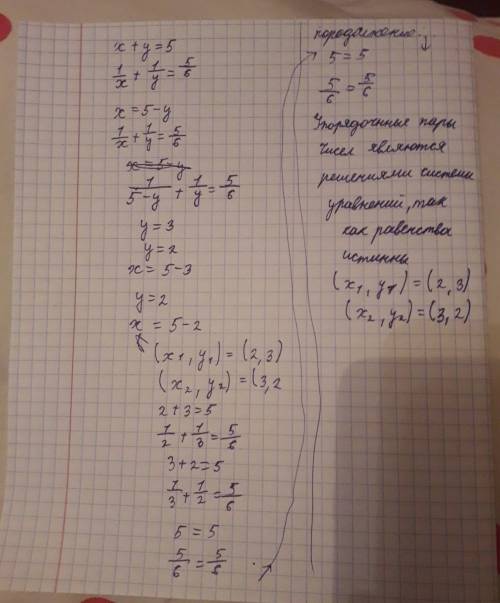 x + y = 5
1/x + 1/y = 5/6
x = 5 - y
1/x + 1/y = 5/6
x = 5 - y
1/(5 - y) + 1/y = 5/6
y = 3
y = 2
x = 5 - 3
y = 2
x = 5 - 2
(x₁, y₁) = (2, 3)
(x₂, y₂) = (3, 2
2 + 3 = 5
1/2 + 1/3 = 5/6
3 + 2 = 5
1/3 + 1/2 = 5/6
5 = 5
5/6 = 5/6
5 = 5
5/6 = 5/6
Упорядочнные пары
чисел являются
решениями системы
уравнений, так
как равенства
истинны
(x₁, y₁) = (2, 3)
(x₂, y₂) = (3, 2)